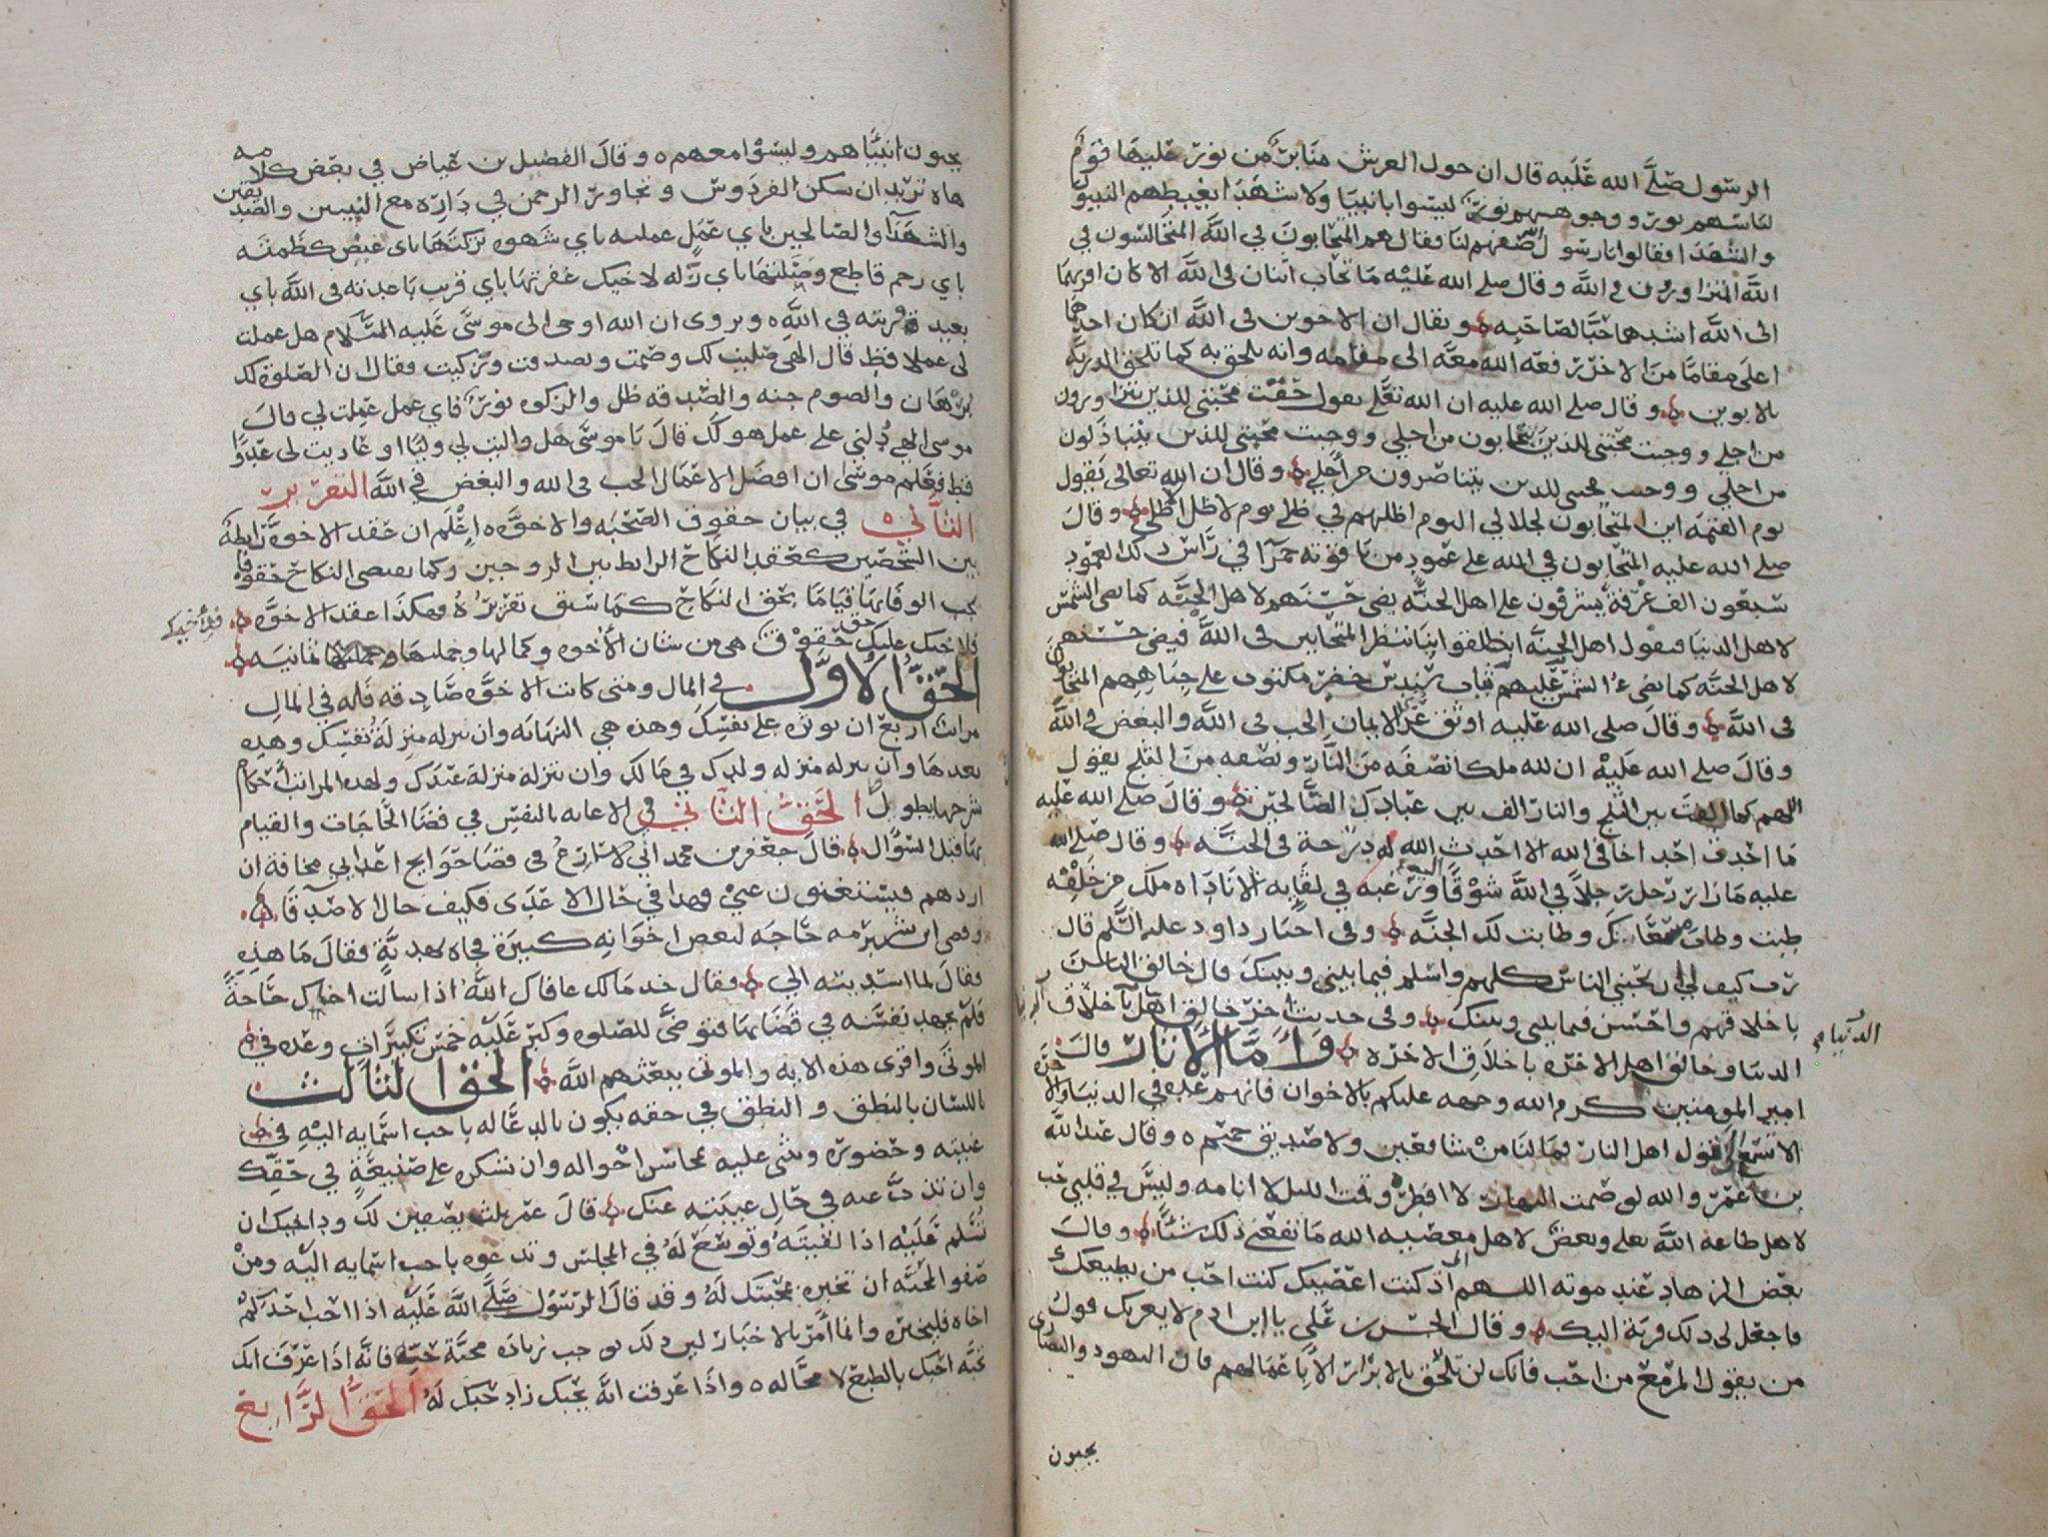 الرسول صلى الله عليه قال ان حول العرش منابر من نور عليها قوم
لباسهم نور ووجوههم نور ليسوا بانبيا ولا شهدا يغبطهم النبيون
والشهدا فقالوا يا رسول الله صفهم لنا فقال هم المتحابون في الله المتجالسون في
الله المتزاورون في الله وقال صلى الله عليه ما تحاب اثنان في الله الا كان احبهما
الى الله اشدهما حبا لصاحبه ويقال ان الاخوين في الله ان كان احدهما
اعلى مقاما من الاخر رفعه الله معه الى مقامه وانه يلحق به كما تلحق الذرية
بالابوين وقال صلى الله عليه ان الله تعالى يقول حقت محبتي للذين يتزاورون
من اجلي ووجبت محبتي للذين يتحابون من اجلي ووجبت محبتي للذين يتباذلون
من اجلي ووجبت محبتي للذين يتناصرون من اجلي وقال ان الله تعالى يقول
يوم القيمة اين المتحابون لجلالي اليوم اظلهم في ظلي يوم لا ظل الا ظلي وقال
صلى الله عليه المتحابون في الله على عمود من ياقوته حمرا في راس ذلك العمود
سبعون الف غرفة يشرفون على اهل الجنة يضي حسنهم لاهل الجنه كما تضي الشمس
لاهل الدنيا فيقول اهل الجنه انطلقوا بنا ننظر المتحابين في الله فيضي حسنهم
لاهل الجنه كما تضيء الشمس عليهم ثياب سندس خضر مكتوب على جباههم المتحابون
في الله وقال صلى الله عليه اوثق عرى الايمان الحب في الله والبغض في الله
وقال صلى الله عليه ان لله ملكا نصفه من النار ونصفه من الثلج يقول
اللهم كما الفت بين الثلج والنار الف بين عبادك الصالحين وقال صلى الله عليه
ما احدث احد اخا في الله الا احدث الله له درجة في الجنة وقال صلى الله
عليه ما زار رجل رجلا في الله شوقا اليه ورغبه في لقايه الا ناداه ملك من خلفه
طبت وطاب ممشاك وطابت لك الجنة وفي اخبار داود عليه السلم قال
رب كيف لي ان يحبني الناس كلهم واسلم فيما بيني وبينك قال خالق الناس
باخلاقهم واحسن فيما بيني وبينك وفي حديث اخر خالق اهل الدنيا باخلاق
الدنيا وخالق اهل الاخره باخلاق الاخره واما الاثار قال
الدنيا
امير المومنين كرم الله وجهه عليكم بالاخوان فانهم عده في الدنيا والاخرة
الا تسمع الى قول اهل النار فما لنا من شافعين ولا صديق حميم وقال عبد الله
بن عمر والله لو صمت النهار لا افطره وقمت الليل لا انامه وليس في قلبي حب
لاهل طاعة الله تعالى وبغض لاهل معصية الله ما نفعني ذلك شئا وقال
بعض الزهاد عند موته اللهم اني اذ كنت اعصيك كنت احب من يطيعك
فاجعل لي ذلك قربة اليك وقال الحسن على يا ابن ادم لا يغرنك قول
من يقول المرء مع من احب فانك لن تلحق بالابرار الا باعمالهم فان اليهود والنصارى
يحبون
يحبون انبياهم وليسوا معهم وقال الفضيل بن عياض في بعض كلامه
هاه تريد ان تسكن الفردوس وتجاور الرحمن في داره مع النبيين والصديقين
والشهدآ والصالحين باي عمل عملته باي شهوه تركتها باي غيض كظمته
باي رحم قاطع وصلتها باي زله لاخيك غفرتها باي قريب باعدته في الله باي
بعيد قربته في الله ويروى ان الله اوحى الى موسى عليه السلام هل عملت
لي عملا قط قال الهي صليت لك وصمت وتصدقت وزكيت فقال ان الصلوة لك
برهان والصوم جنه والصدقه ظل والزكوه نور فاي عمل عملت لي قال
موسى الهي دلني على عمل هو لك قال يا موسى هل واليت لي وليا او عاديت لي عدوا
قط فعلم موسى ان افضل الاعمال الحب في الله والبغض في الله التقرير
الثاني في بيان حقوق الصحبه والاخوه اعلم ان عقد الاخوة رابطة
بين الشخصين كعقد النكاح الرابط بين الزوجين وكما يقتضي النكاح حقوقا
يجب الوفا بها قياما بحق النكاح كما سبق تقريره فهكذا عقد الاخوه
فلاخيك
فلاخيك عليك حقوق هي من شان الاخوه وكمالها وجملتها ثمانيه
الحق الاول في المال ومتى كانت الاخوه صادقه فله في المال
مراتب اربع ان توثره على نفسك وهذه هي النهايه وان تنزله منزلة نفسك وهذه
بعدها وان تنزله منزله ولدك في مالك وان تنزله منزلة عبدك ولهذه المراتب احكام
شرحها يطول الحق الثاني في الاعانه بالنفس في قضا الحاجات والقيام
بها قبل السؤال قال جعفر بن محمد اني لاسارع في قضا حوايج اعدايي مخافة ان
اردهم فيستغنون عني فهذا في حال الاعدى فكيف حال الاصدقا
وقضى ابن شبرمه حاجه لبعض اخوانه كبيرة فجاه بهدية فقال ما هذه
فقال لما اسديته الي فقال خذ مالك عافاك الله اذا سالت اخاك حاجة
فلم يجهد نفسه في قضايها فتوضى للصلوه وكبر عليه خمس تكبيرات وعده في
الموتى واقرى هذه الايه والموتى يبعثهم الله الحق الثالث
باللسان بالنطق والنطق في حقه يكون بالدعا له باحب اسمايه اليه في
غيبته وحضوره وتثني عليه بمحاسن احواله وان تشكره على صنيعة في حقك
وان تذب عنه في حال غيبته عنك قال عمر ثلث يصفين لك ود اخيك ان
تسلم عليه اذا لقيته وتوسع له في المجلس وتدعوه باحب اسمايه اليه ومن
صفو المحبه ان تخبره بمحبتك له وقد قال الرسول صلى الله عليه اذا احب احدكم
اخاه فليخبره وانما امر بالاخبار لان ذلك يوجب زياده محبة حبه فانه اذا عرف انك
تحبه احبك بالطبع لا محاله واذا عرفت انه يحبك زاد حبك له الحق الرابع